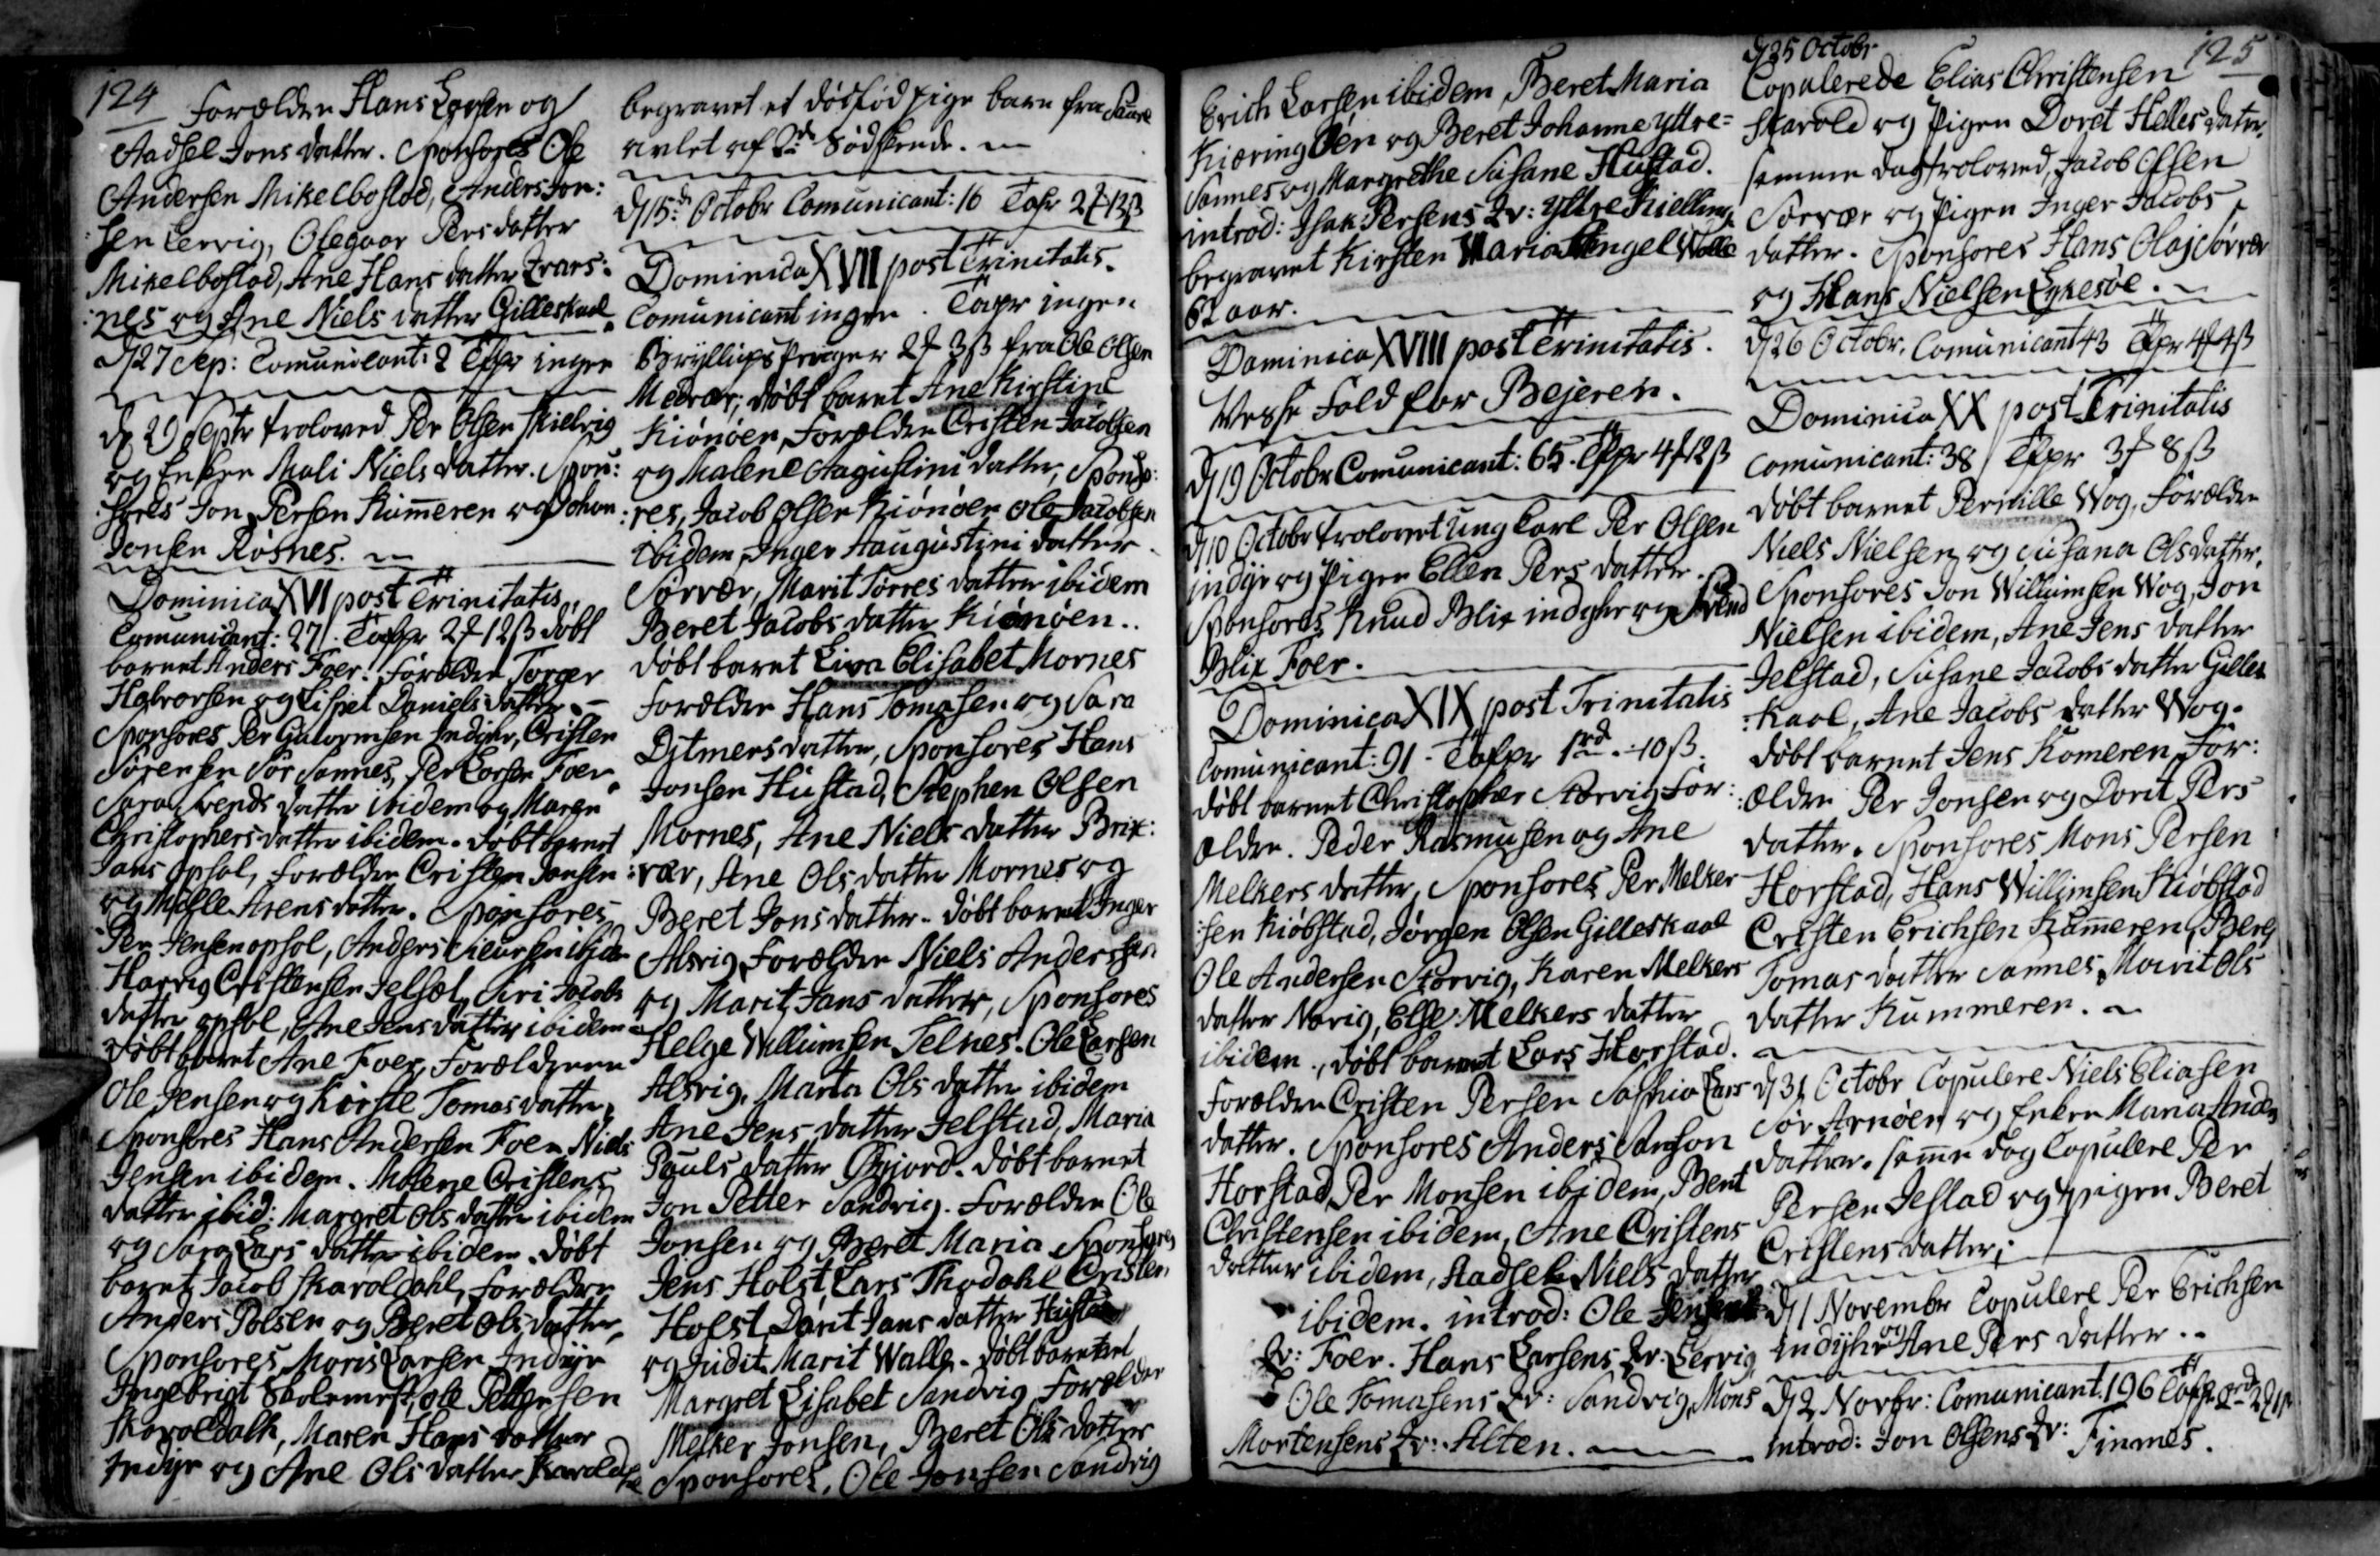 124
Forældre Hans Larsen og
Aadsel Jons datter. Sponsores Ole
Andersen Mikelbostad, Anders Jon:
sen Lervig, Olegaar Pers datter
Mikelbostad, Ane Hans datter
:nes og Ane Niels datter Gilleskaal
d 27 Sep: Comunicant: 2 Tafr ingen
d 29 Septr troloved Per Olsen
og Enken Mali Niels datter. Spon:
:sores Jon Persen Kummeren og Johan
Jonsen Rösnes.
Dominica XVI post Trinitatis.
Comunicant: 27. 2 12 ß döbt
barnet Anders Foer. Forældre Torger
Halvorsen og Lisbet Daniels datter.
Sponsores Per Guttormsen Indyr, Cristen
Sörensen Sör Sannes, Per Larsen Foer
Sara Svends datter ibidem og Maren
Christophers datter ibidem. döbt barnet
Jans Opsal, Forældre Cristen Jansen
og Arens datter. Sponsores
Per Jensen opsal, Anders ibidem
Cristensen Siri Jacobs
datter opsal, Ane Jens datter ibidem
döbt barnet Ane Foer, Forældrene
Ole Jensen og Kirste Tomas datter,
Sponsores Hans Andersen Foer Niels
Jensen ibidem. Malene Cristens
datter ibid: Margret Ols datter ibidem
og Sara Lars datter ibidem. döbt
barnet Jacob Skaroldahl, Forældre
Anders Polsen og Beret Ols datter,
Sponsores, Moris Larsen Indyr
Ingebrigt Ole Pettersen
Skaroldalh, Maren Hans datter
Indyr og Ane Ols datter
begravet et dödföd pige barn fra
avlet af Södskende.
d 15de Octobr Comunicant: 16 2 12 ß
Dominica XVII post Trinitatis.
Comunicant ingen. ingen
Bryllups Penger 2 3 ß fra Ole Olsen
döbt barnet Ane Kirstine
Kiönöen, Forældre Cristen Jacobsen
og Malene Augustini datter, Sponso:
:res, Jacob Olsen Kiönöen Ole Jacobsen
ibidem, Inger Augustini datter
Sörvær, Marit Torres datter ibidem
Beret Jacobs datter Kiönöen..
döbt barnet Liva Elisabet Mornes
Forældre Hans Tomasen og Sara
Ditmers datter, Sponsores Hans
Jonsen Hustad, Stephen Olsen
Mornes, Ane Niels datter Brix:
:vær, Ane Ols datter Mornes og
Beret Jons datter. döbt barnet Inger
Alsvig, Forældre Niels Andersen
og Marit Jans datter, Sponsores
Helge Willumsen Selnes. Ole Larsen
Alsvig, Marta Ols datter ibidem
Ane Jens datter Jelstad, Maria
Pouls datter döbt barnet
Jon Petter Sandvig. Forældre Ole
Jonsen og Beret Maria Sponsores
Jens Holst Lars Thodahl Cristen
Holst Dorit Jans datter Hustad
og Judit Marit Walle. döbt barnet
Margret Lisabet Sandvig Forældre
Melker Jonsen, Beret Ols datter
Sponsores, Ole Jonsen Sandvig
Erich Larsen ibidem, Beret Maria
Kiæring Öen og Beret Johanne yttre=
Sannes og Margrethe Susane Hustad.
introd: Isak Persens Qv: Yttre
begravet Kirsten Maria Walle
62 aar.
Dominica XVIII post Trinitatis.
Messe Fald for Bejeren.
d 19 Octobr Comunicant: 65. 4 12 ß
d 10 Octobr trolovet Ung Carl Per Olsen
indyr og Pigen Ellen Pers datter.
Sponsores Knud Blix indyhr og Svend
Blix Foer.
Dominica XIX post Trinitatis
Comunicant: 91. 1rd. 10 ß.
döbt barnet Christopher Storvig For:
ældre. Peder Rasmusen og Ane
Melkers datter, Sponsores Per Melker
:sen Kiöbstad, Jörgen Olsen Gilleskaal
Ole Andersen Storvig, Karen Melkers
datter Norvig, Else Melkers datter
ibidem., döbt barnet Lars Horstad.
Forældre Cristen Persen Saphia Lars
datter. Sponsores Anders Janson
Horstad, Per Monsen ibidem, Bent
Christensen ibidem, Ane Cristens
datter ibidem, Aadsel Niels datter
ibidem. introd: Ole Jensens
Qv: Foer. Hans Larsens Qv: Lervig,
Ole Tomasens Qv: Sandvig, Mons
Mortensens Qv: Alten.
125
d 25 Octobr
Copulerede Elias Christensen
Skarold og Pigen Doret Helles datter,
samme dag troloved, Jacob Olsen
Sörvær og Pigen Inger Jacobs
datter. Sponsores Hans Olaj Sörvær
og Hans Nielsen
d 26 Octobr. Comunicant 43 4 4 ß
Dominica XX post Trinitatis
Comunicant: 38 3 8 ß
döbt barnet Pernille Wog, Forældre
Niels Nielsen og Susana Ols datter,
Sponsores Jon Willumsen Wog, Jon
Nielsen ibidem, Ane Jens datter
Jelstad, Susane Jacobs datter Gilles
:kaal, Ane Jacobs datter Wog.
döbt barnet Jens Komeren, For:
:ældre Per Jonsen og Dorit Pers
datter. Sponsores Mons Persen
Horstad, Hans Willumsen Kiöbstad
Cristen Erichsen Kummeren, Beret
Tomas datter Sannes, Marit Ols
datter Kummeren.
d 31 Octobr Copulere Niels Eliasen
Sör Arnöen og Enken Maria Anders
datter. samme dag Copulere Per
Persen Jelstad og pigen Beret
Cristens datter;
d 1 Novembr Copulere Per Erichsen
indyhr og Ane Pers datter..
d 2 Novbr: Comunicant. 196
introd: Jon Olsens Qv: Finnes.